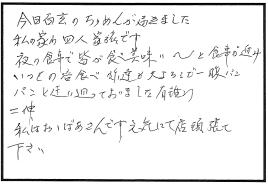 今日百玄のちりめんが届きました
私の家わ四人家族です
夜の食事で皆が食べ美味い〜と食事が進み
いつもの倍食べ 大よろこび 腹パン
パンと 廻っておりました 有難う

私はおばあさんです元気にて店頭張て
下さい